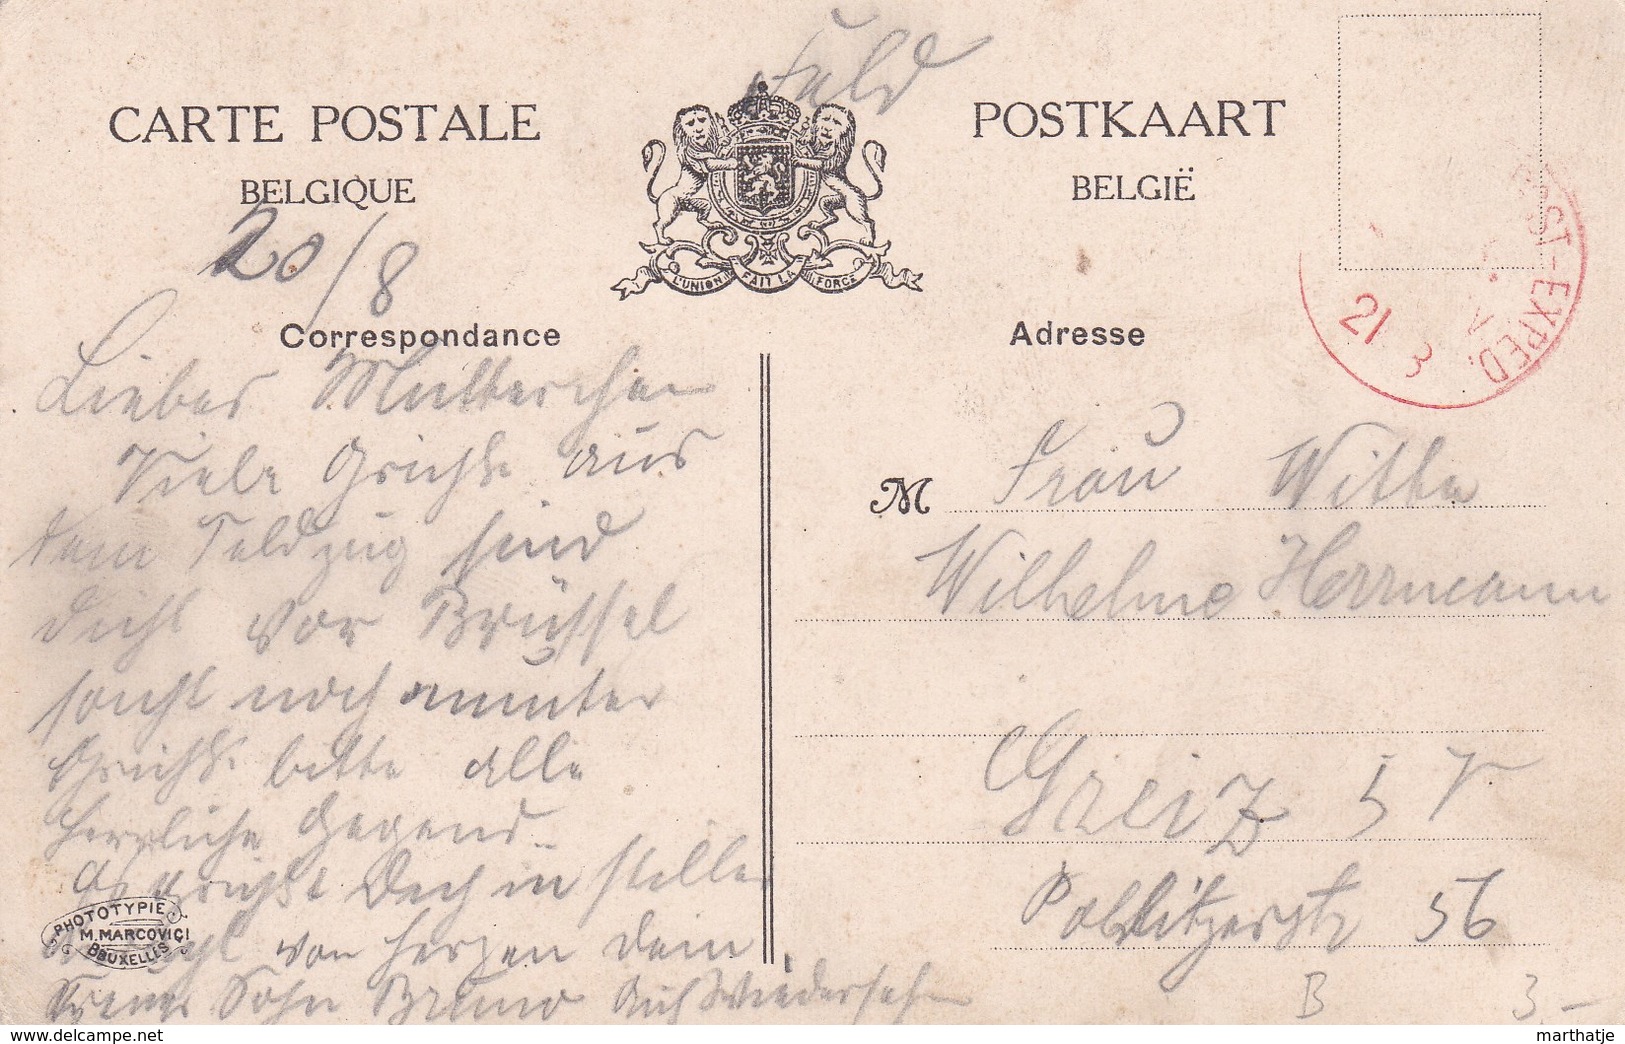 Feld
CARTE POSTALE
BELGIQUE
POSTKAART
BELGIË
L'UNION FAIT LA FORCE
20/8
POST-EXPED.
21 3
Correspondance
Adresse
Liebes Mutterchen
Viele Grüße aus
dem Feldzug sind
dicht vor Brüssel
sonst noch munter
Grüße bitte alle
herzliche Gegend
Gegrüßt Dich in stille
von Herzen Dein
Sohn Bruno Auf Wiedersehn
M Frau Witwe
Wilhelmine Herrmann
Greiz i V
Pohlitzerstr 56
B 3,-
PHOTOTYPIE
M. MARCOVICI
BRUXELLES
https://www.delcampe.net
marthatje